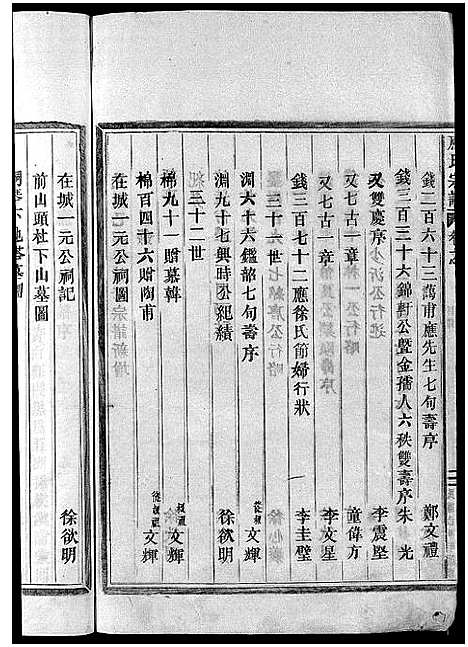 錢二百六十三萬甫應先生七旬壽序 鄭文禮
錢三百三十六錦軒公暨金孺人六秩雙壽序 朱光
又雙慶序 李震堅
又七古一章 童偉方
又七古一章 李文星
錢三百七十二應徐氏節婦行狀 李圭璧
三十一世
淵六十六鑑韶七旬壽序 從叔 文輝
淵九十七興時公紀績 徐欲明
三十二世
棉九十一贈慕韓 叔祖 文輝
棉百四十六贈陶甫 從叔祖 文輝
在城一元公祠圖
在城一元公祠記 徐欲明
前山頭杜下山墓圖